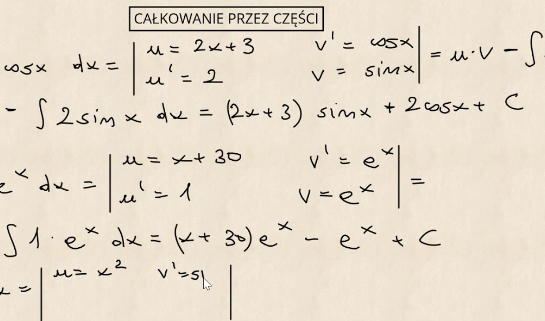 CAŁKOWANIE PRZEZ CZĘŚCI
cosx dx = | u = 2x+3 v' = cosx | = u·v - ∫
| u' = 2 v = sinx |
- ∫ 2 sin x dx = (2x+3) sinx + 2cosx + C
e^x dx = | u = x+30 v' = e^x | =
| u' = 1 v = e^x |
∫ 1 · e^x dx = (x+30)e^x - e^x + C
x = | u = x² v' = s |